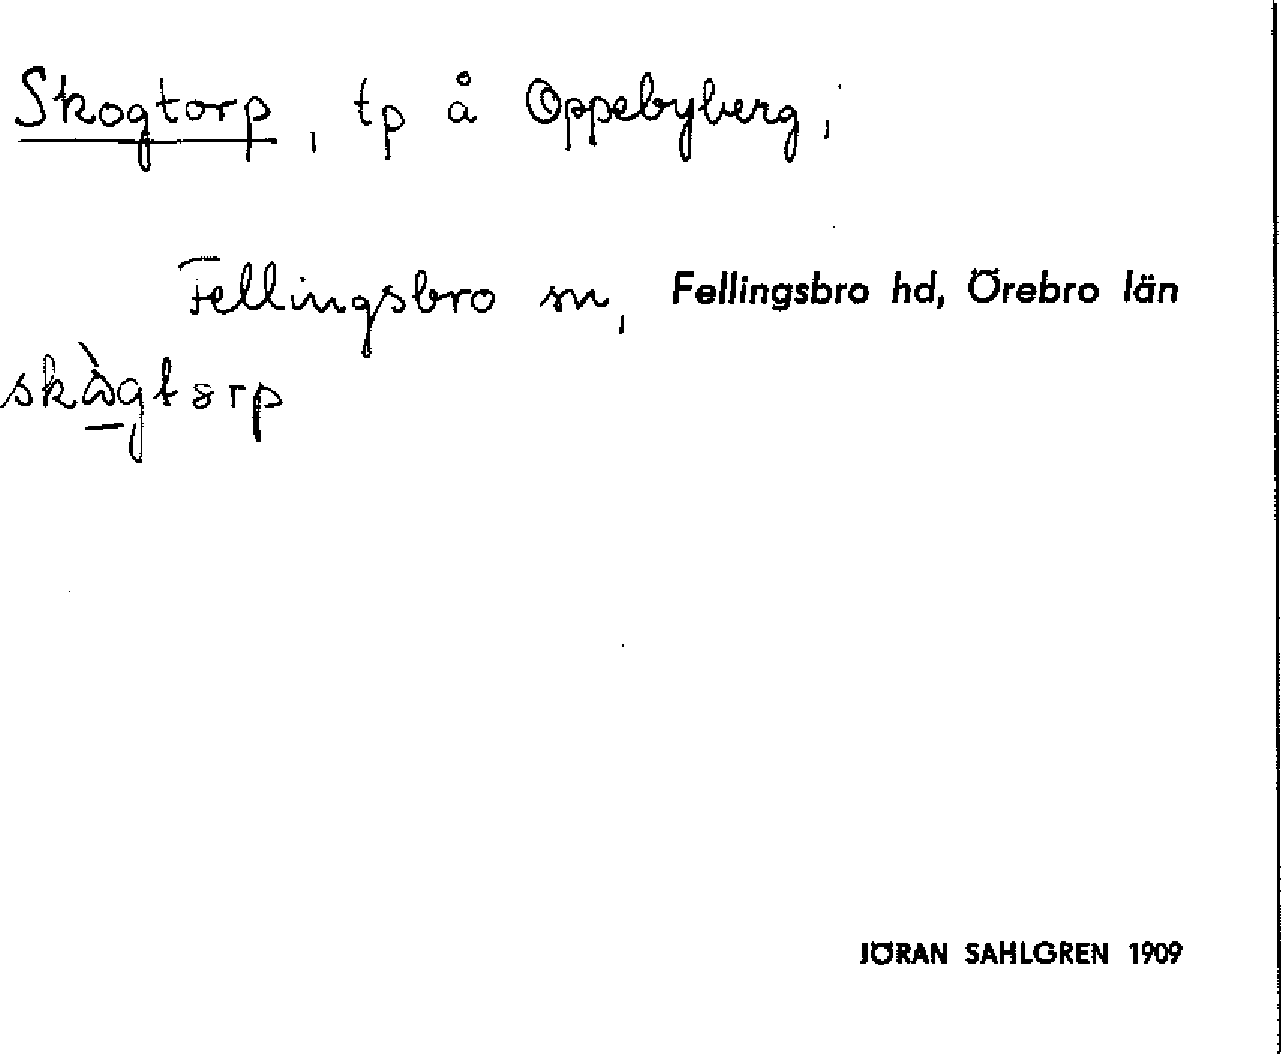 Skogtorp, tp å Oppebyberg;
Fellingsbro sn, Fellingsbro hd, Örebro län
JÖRAN SAHLGREN 1909